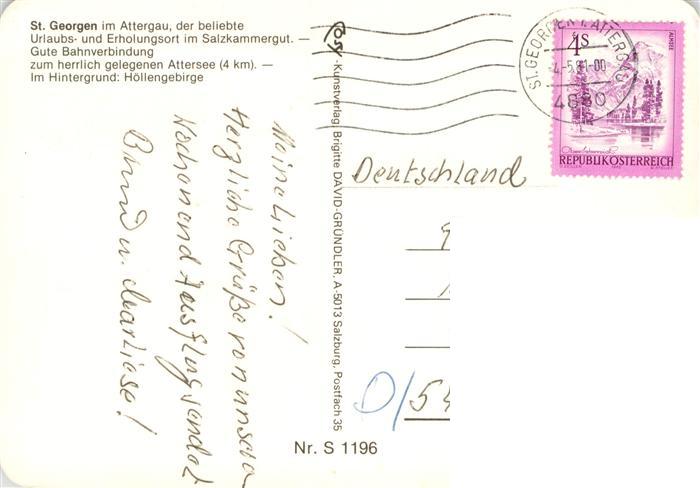 St. Georgen im Attergau, der beliebte
Urlaubs- und Erholungsort im Salzkammergut. —
Gute Bahnverbindung
zum herrlich gelegenen Attersee (4 km). —
Im Hintergrund: Höllengebirge
Cosy - Kunstverlag: Brigitte DAVID-GRÜNDLER, A-5013 Salzburg, Postfach 35
Nr. S 1196
ST. GEORGEN I. ATTERGAU
4880
4S
ALMSEE
REPUBLIK ÖSTERREICH
Deutschland
D/54
Meine Lieben!
Herzliche Grüße von unserm
u. Marliese!